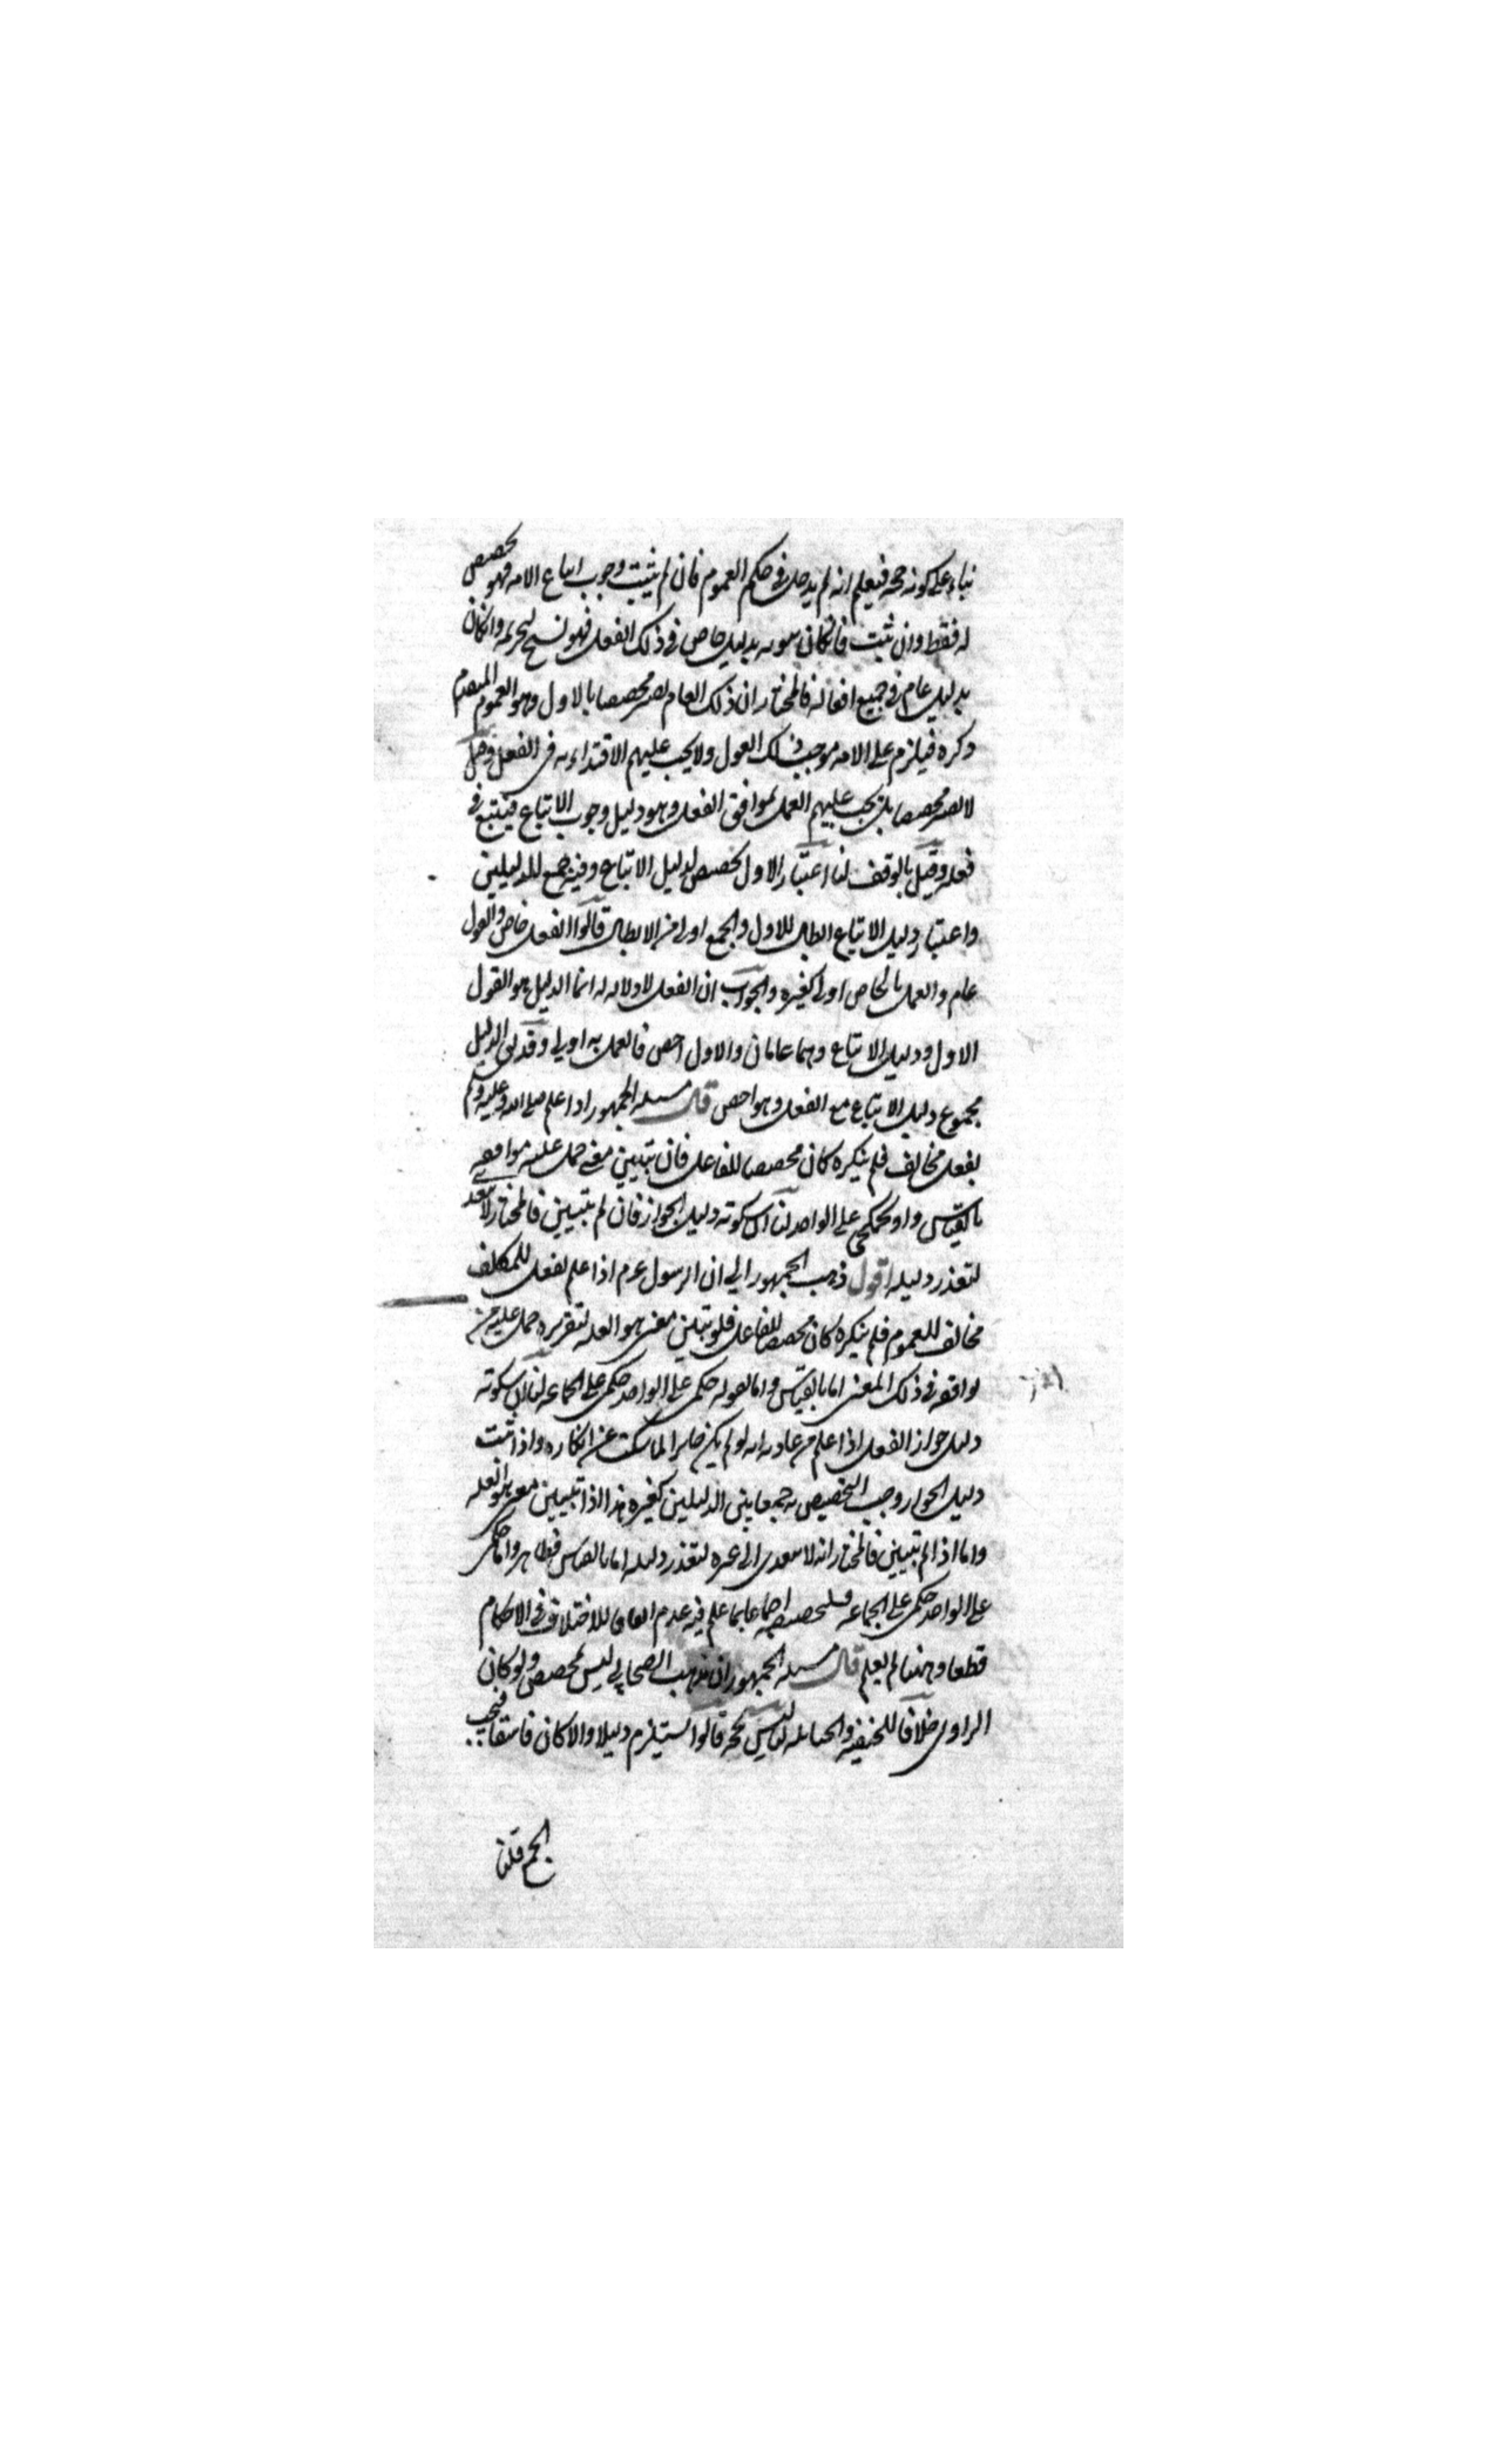 بناء على كونه حجة فيعلم انه لم يدخل في حكم العموم فان لم يثبت وجوب اتباع الامه فهو تخصيص
له فقط وان ثبت فان كان ثبوته بدليل خاص في ذلك الفعل فهو نسخ لتحريمه وان كان
بدليل عام في جميع افعاله فالمختار ان ذلك العام يصير مخصصا بالاول وهو العموم المتقدم
ذكره فيلزم على الامه موجب ذلك القول ولا يجب عليهم الاقتداء به في الفعل وقيل
لا يصير مخصصا بل يجب عليهم العمل بموافق الفعل وهو دليل وجوب الاتباع فيتبع في
فعله وقيل بالوقف لنا اعتبار الاول تخصيص لدليل الاتباع وفيه جمع للدليلين
واعتبار دليل الاتباع ابطال للاول والجمع اولى من الابطال قالوا الفعل خاص والقول
عام والعمل بالخاص اولى كغيره والجواب ان الفعل لا دلاله له انما الدليل هو القول
الاول ودليل الاتباع وهما عامان والاول اخص فالعمل به اولى وقد بقي الدليل
مجموع دليل الاتباع مع الفعل وهو اخص قال مسئله الجمهور اذا علم صلى الله عليه وسلم
بفعل مخالف فلم ينكره كان مخصصا للفاعل فان تبين معنى حمل عليه موافقه
بالقياس او بحكمي على الواحد لنا ان سكوته دليل الجواز فان لم يتبين فالمختار لا يتعدى
لتعذر دليله اقول ذهب الجمهور الى ان الرسول عم اذا علم بفعل للمكلف
مخالف للعموم فلم ينكره كان مخصصا للفاعل فلو تبين معنى هو العله لتقريره حمل عليه من
يوافقه في ذلك المعنى اما بالقياس واما بقوله حكمي على الواحد حكمي على الجماعه لنا ان سكوته
دليل جواز الفعل اذا علم من عادته انه لو لم يكن جائزا لما سكت عن انكاره واذا ثبت
دليل الجواز وجب التخصيص به جمعا بين الدليلين كغيره هذا اذا تبين معنى هو العله
واما اذا لم يتبين فالمختار انه لا يتعدى الى غيره لتعذر دليله اما بالقياس فظاهر واما حكمي
على الواحد حكمي على الجماعه فلتخصيصه اجماعا بما علم فيه عدم الفارق للاختلاف في الاحكام
قطعا وههنا لم يعلم قال مسئله الجمهور ان مذهب الصحابي ليس بمخصص ولو كان
الراوى خلافا للحنفيه والحنابله لنا ليس بحجه قالوا يستلزم دليلا والا كان فاسقا فيجب
الجمع قلنا